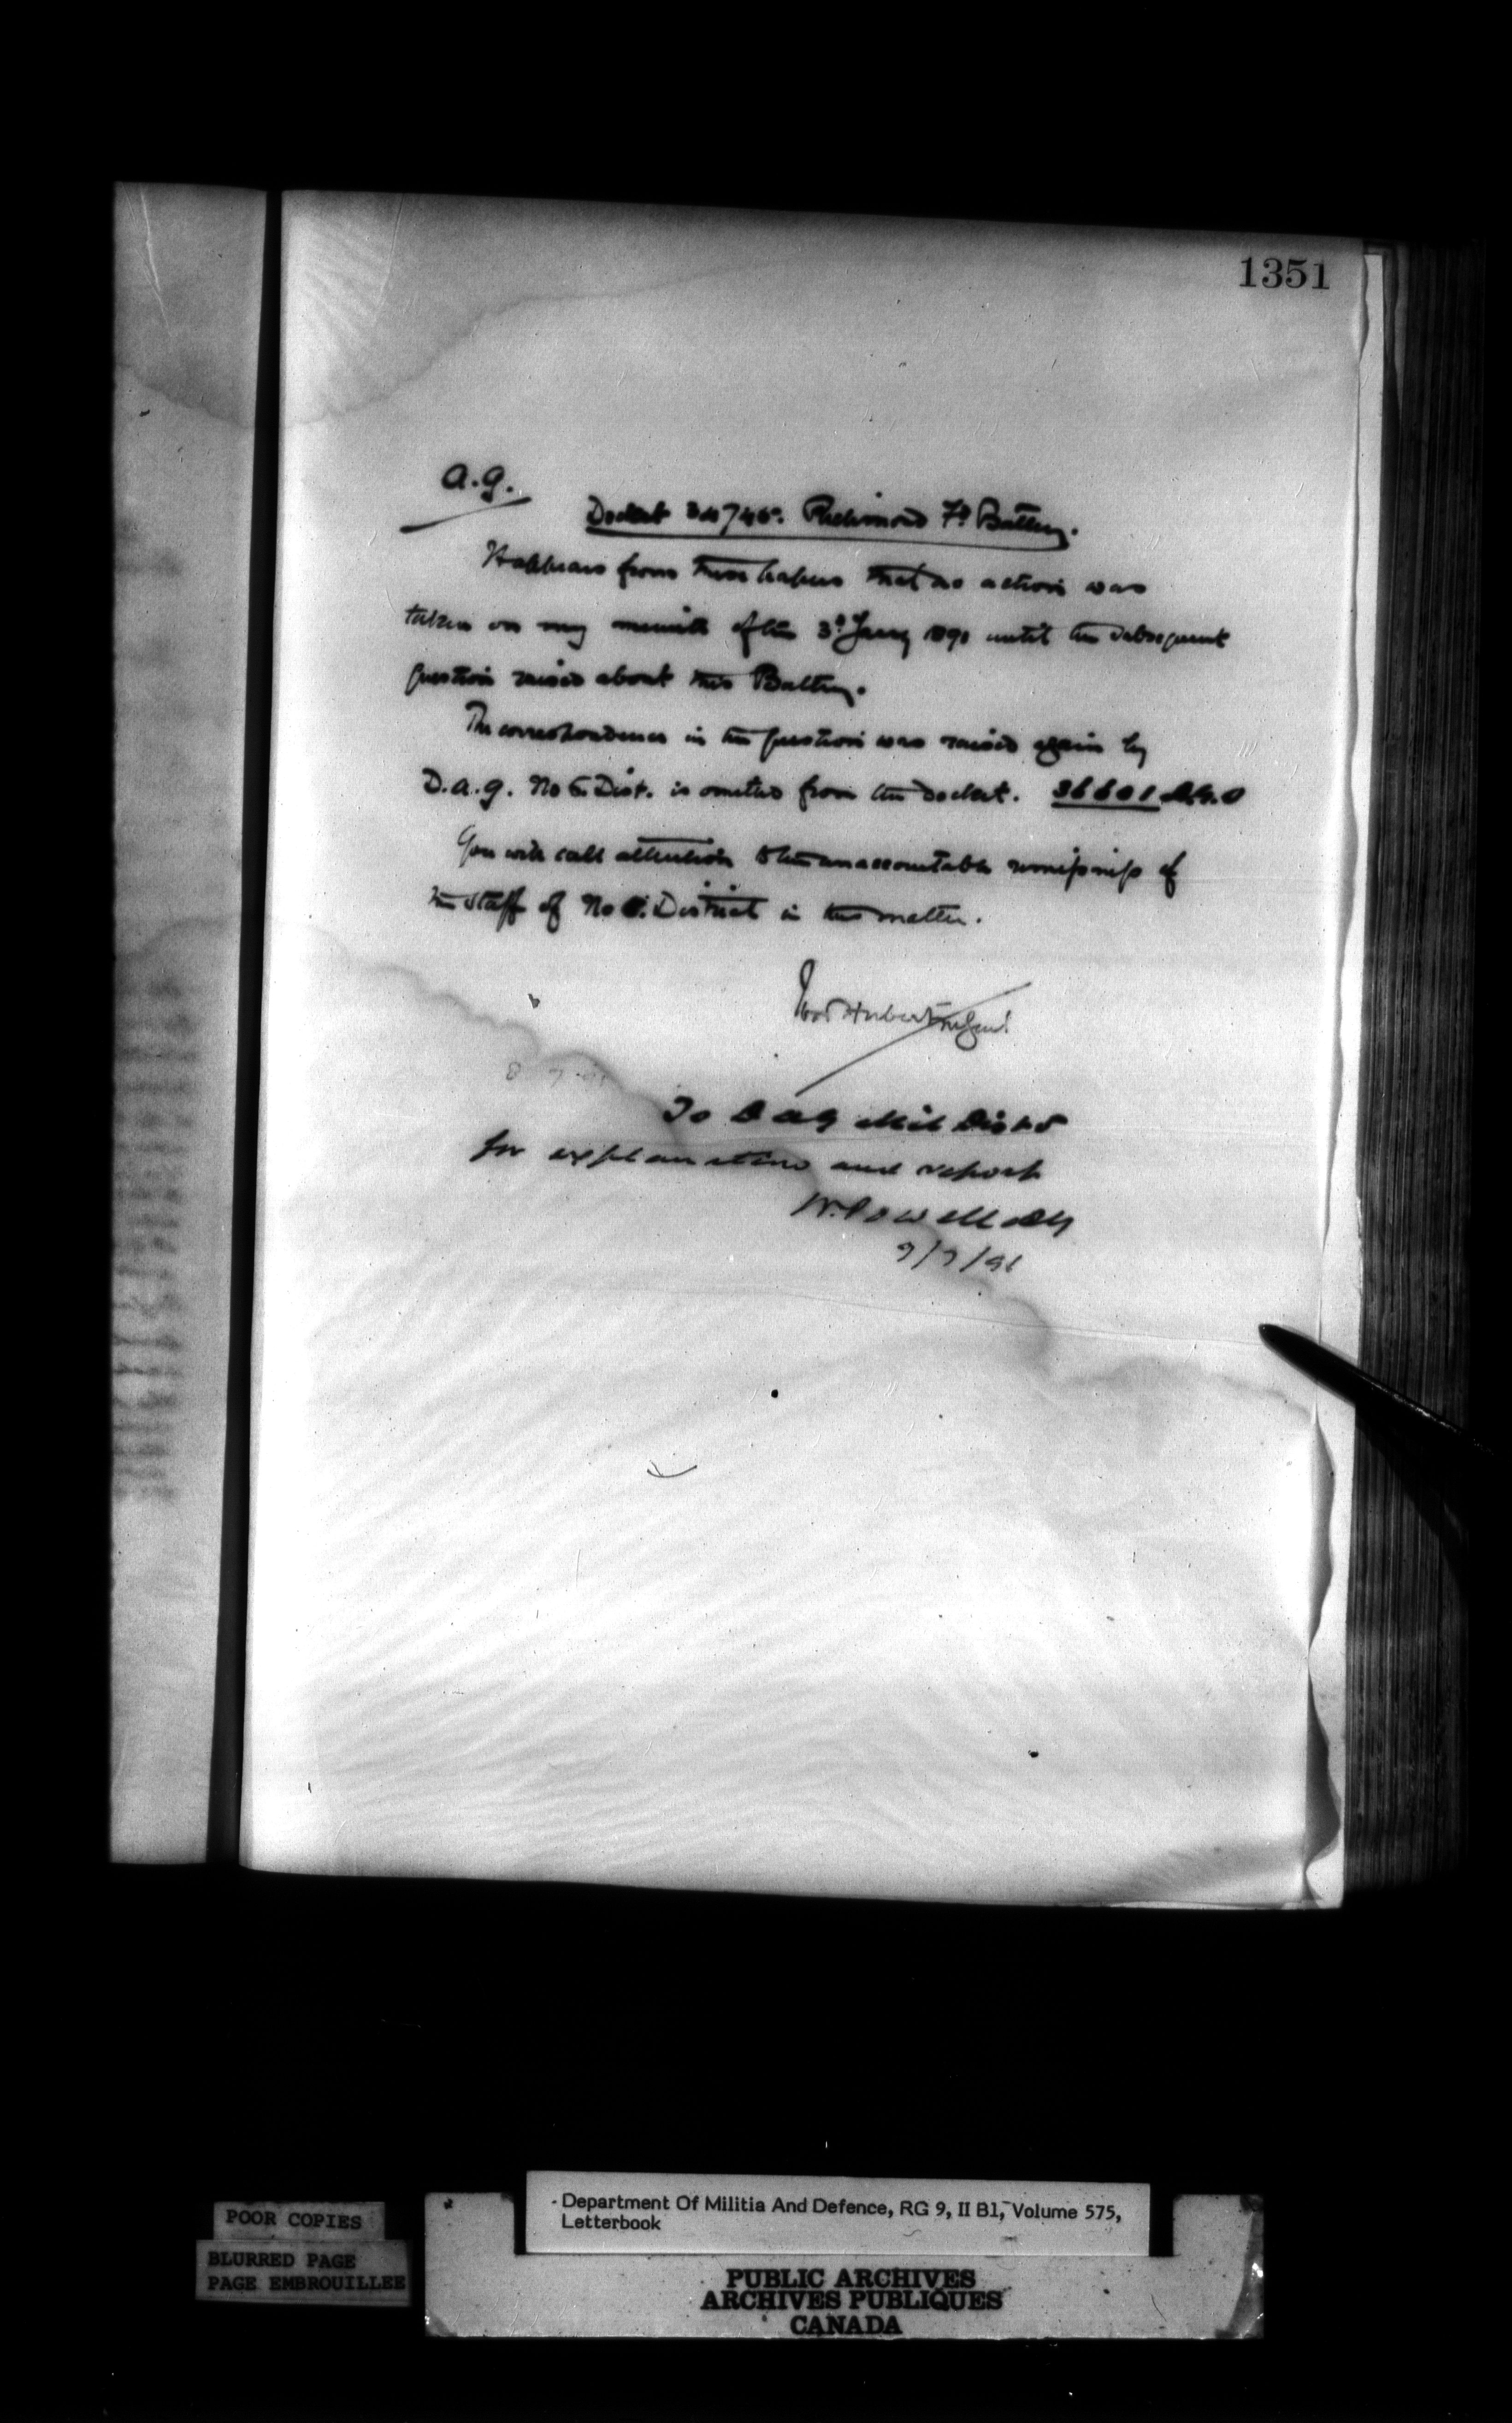 1351
A.G.
Docket Richmond Fd Battery.
It appears from these papers that no action was
taken on my minute of the 3d Jany 1891 until the subsequent
question raised about this Battery.
The correspondence in the question was raised again by
D.A.G. No 5. Dist. is omitted from the docket. 36601 A.G.O
You will call attention to the unaccountable remissness of
the staff of No 5. District in this matter.
Ivor Herbert M Genl
8 7 91
To D A G Mil Dist 5
for explanation and report
W. Powell AG
9/7/91
POOR COPIES
BLURRED PAGE
PAGE EMBROUILLEE
- Department Of Militia And Defence, RG 9, II B1, Volume 575,
Letterbook
PUBLIC ARCHIVES
ARCHIVES PUBLIQUES
CANADA